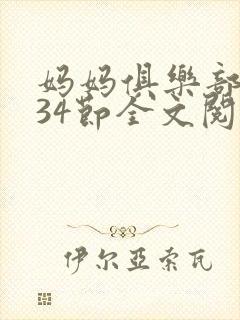 妈妈俱樂部
34節全文閱
伊尔亞索瓦